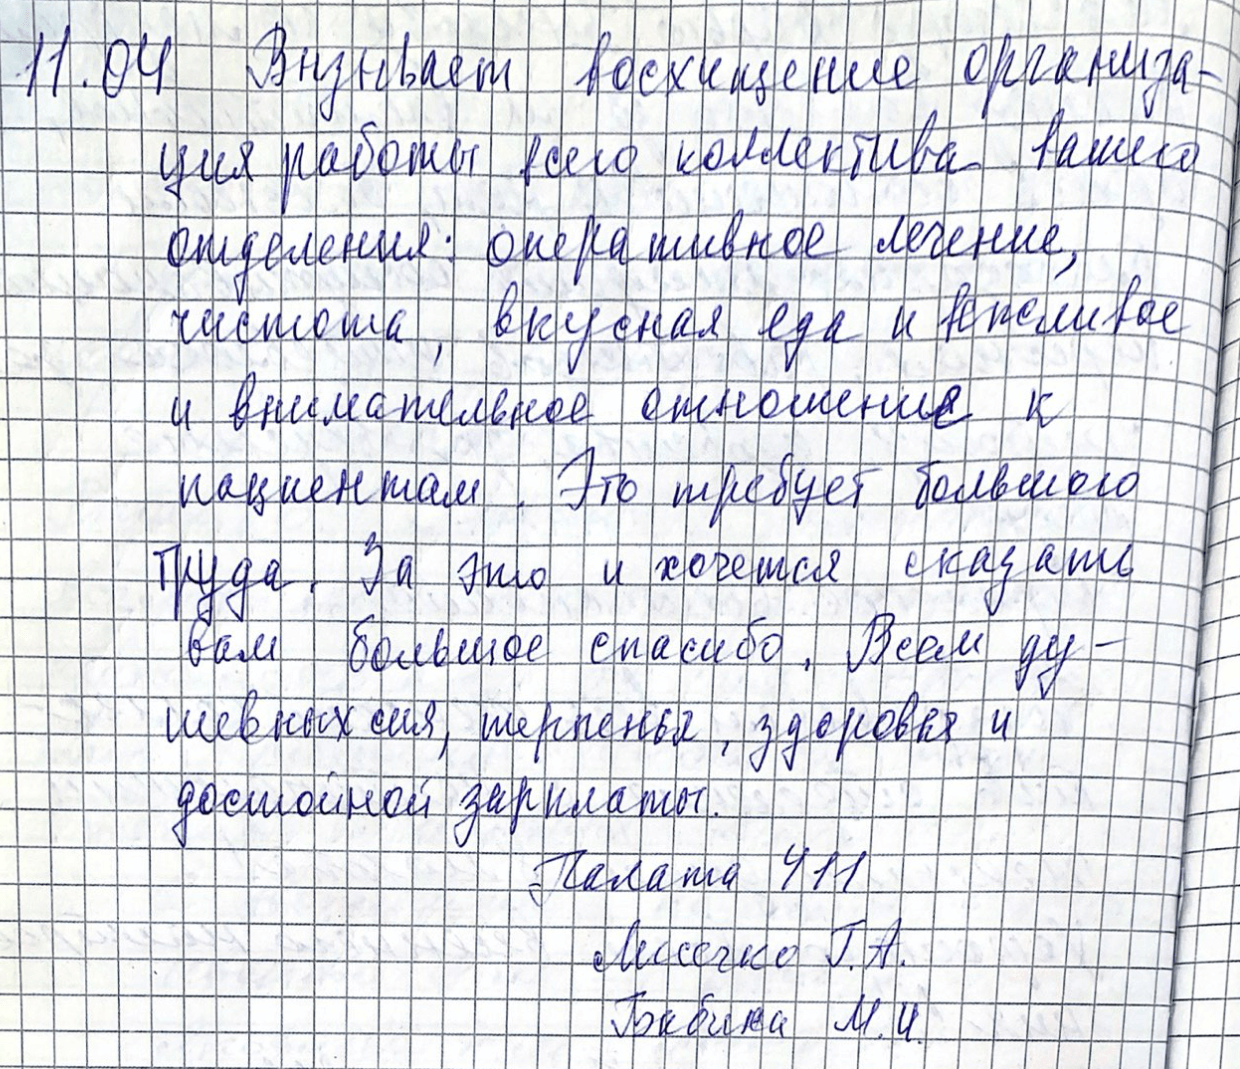 11.04 Вызывает восхищение организа-
ция работы всего коллектива вашего
отделения: оперативное лечение,
чистота, вкусная еда и вежливое
и внимательное отношение к
пациентам. Это требует большого
труда. За это и хочется сказать
вам большое спасибо. Всем ду-
шевных сил, терпенья, здоровья и
достойной зарплаты.
Палата 411
Г.А.
М.И.